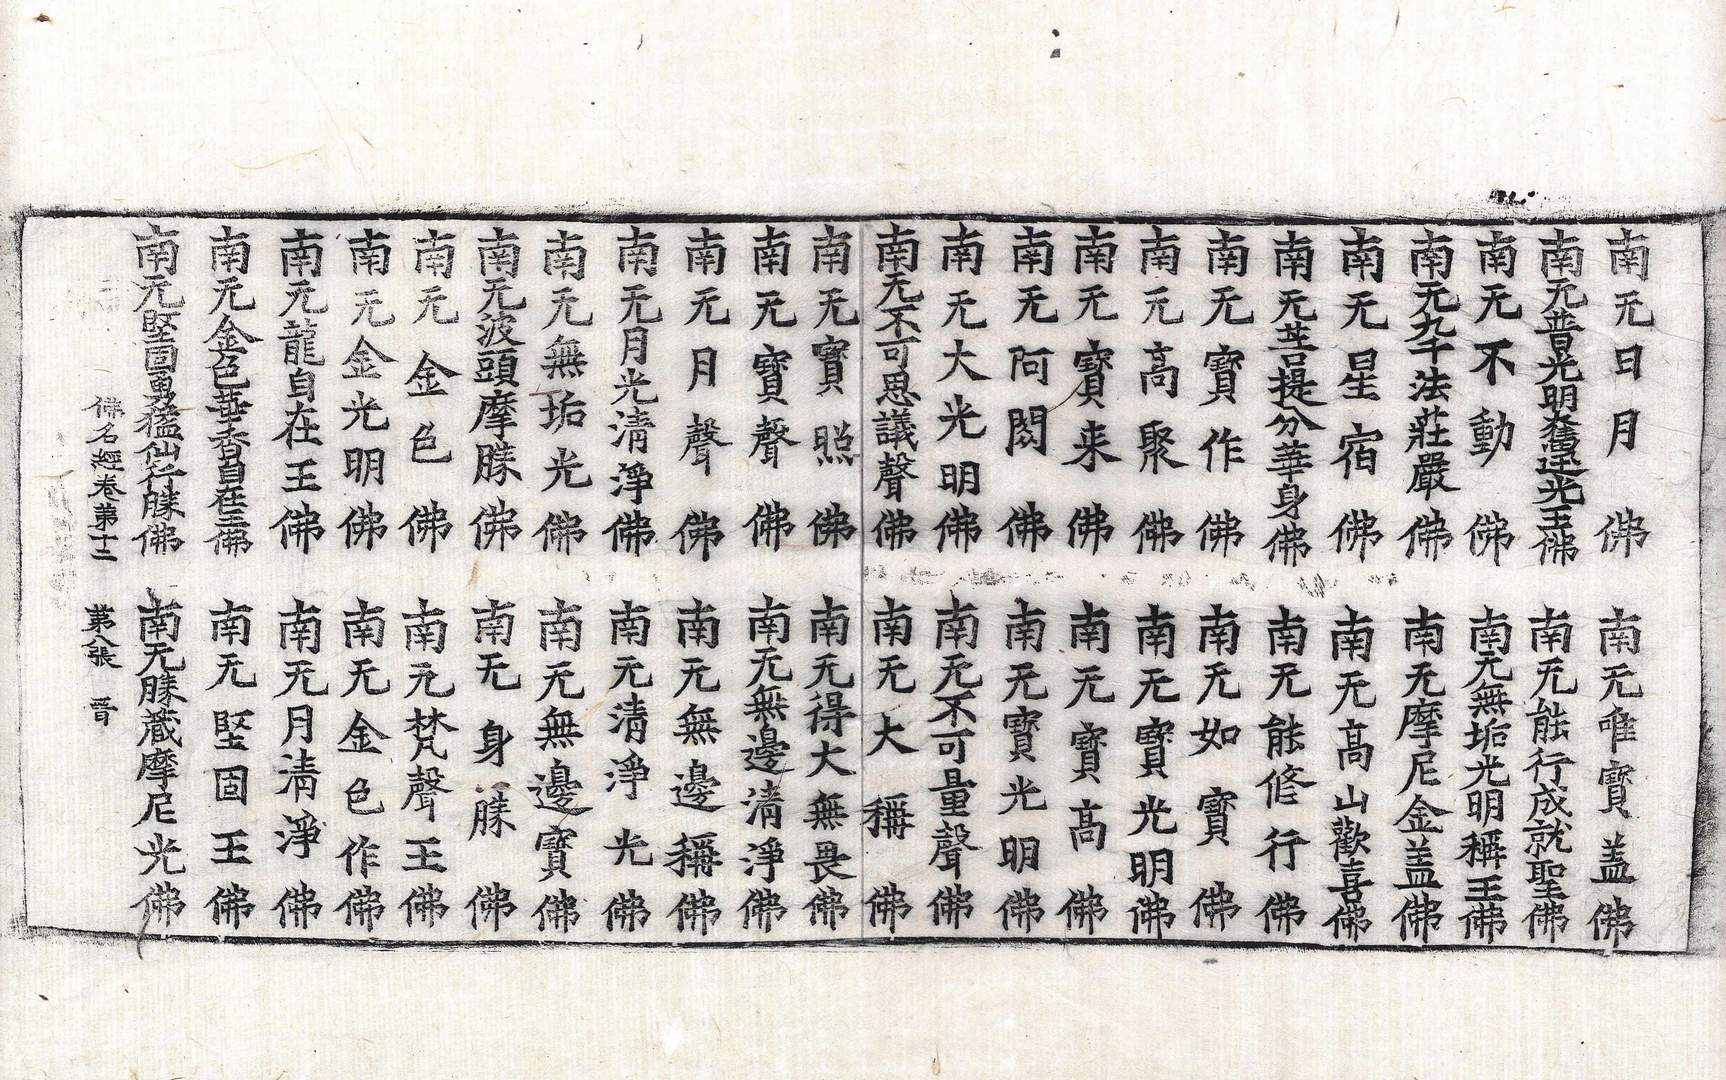 南无日月佛 南无唯寶盖佛
南无普光明奮迅光王佛 南无能行成就聖佛
南无不動佛 南无無垢光明稱王佛
南无九千法莊嚴佛 南无摩尼金盖佛
南无星宿佛 南无高山歡喜佛
南无菩提分華身佛 南无能修行佛
南无寶作佛 南无如寶佛
南无高聚佛 南无寶光明佛
南无寶来佛 南无寶高佛
南无阿閦佛 南无寶光明佛
南无大光明佛 南无不可量聲佛
南无不可思議聲佛 南无大稱佛
南无寶照佛 南无得大無畏佛
南无寶聲佛 南无無邊清淨佛
南无月聲佛 南无無邊稱佛
南无月光清淨佛 南无清淨光佛
南无無垢光佛 南无無邊寶佛
南无波頭摩勝佛 南无身勝佛
南无金色佛 南无梵聲王佛
南无金光明佛 南无金色作佛
南无龍自在王佛 南无月清淨佛
南无金色華香自在王佛 南无堅固王佛
南无堅固勇猛仙行勝佛 南无勝藏摩尼光佛
佛名經卷第十二 第八張 晋